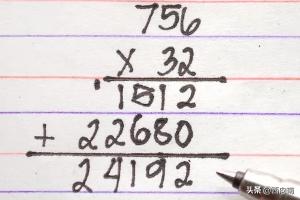 756
x 32
1512
+ 22680
24192